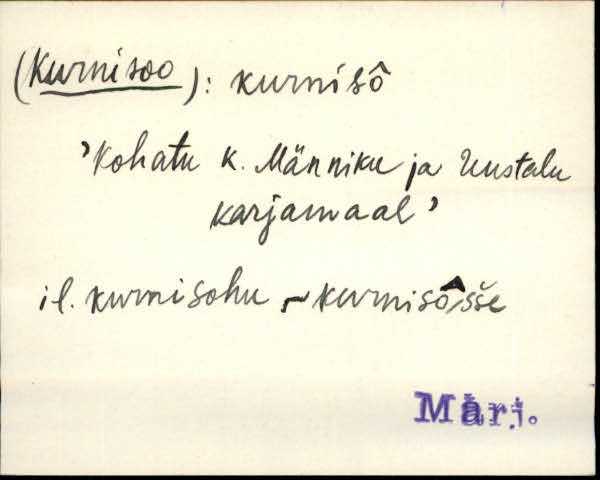 (Kurnisoo): kurnisô
'Kohatu k. Männiku ja Uustalu
karjamaal'
il. kurnisohu ~ kurnisôsše
Märj.